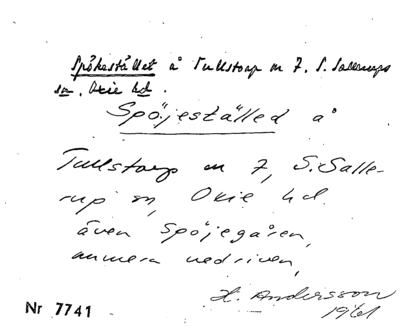 Spökestället å Tullstorp nr 7. S. Sallerups
sn. Oxie hd.
Spöjeställed å
Tullstorp nr 7, S. Salle-
rup sn, Oxie hd.
även Spöjegåren,
numera nedriven,
H. Andersson
1961
Nr 7741